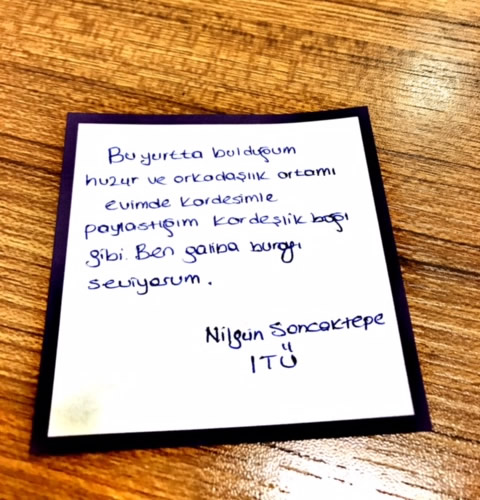 Bu yurtta bulduğum
huzur ve arkadaşlık ortamı
evimde kardeşimle
paylaştığım kardeşlik bağı
gibi. Ben galiba burayı
seviyorum.
Nilgün Soncaktepe
İTÜ